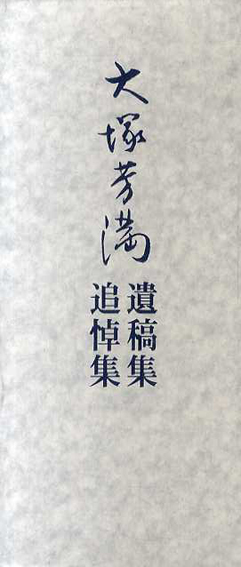 大塚芳満
遺稿集
追悼集